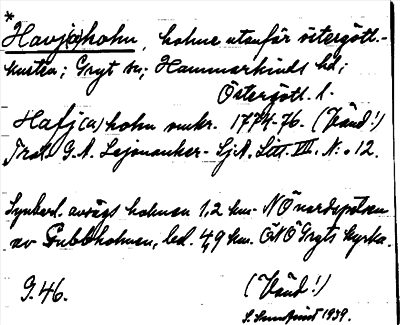 *
Havj(a)holm, holme utanför östergötl.-
kusten; Gryt sn; Hammarkinds hd;
Östergötl. l.
Hafj(a)holm omkr. 1774-76. (Vänd!)
Trol. G. A. Lejonanker. Sj.A. Litt. III. N. o 12.
Synbarl. avvägs holmen 1,2 km NÖ nordspetsen
av Gubbholmen, bel. 4,9 km ÖNÖ Gryts kyrka.
G. 46.
(Vänd!)
S. 1939.